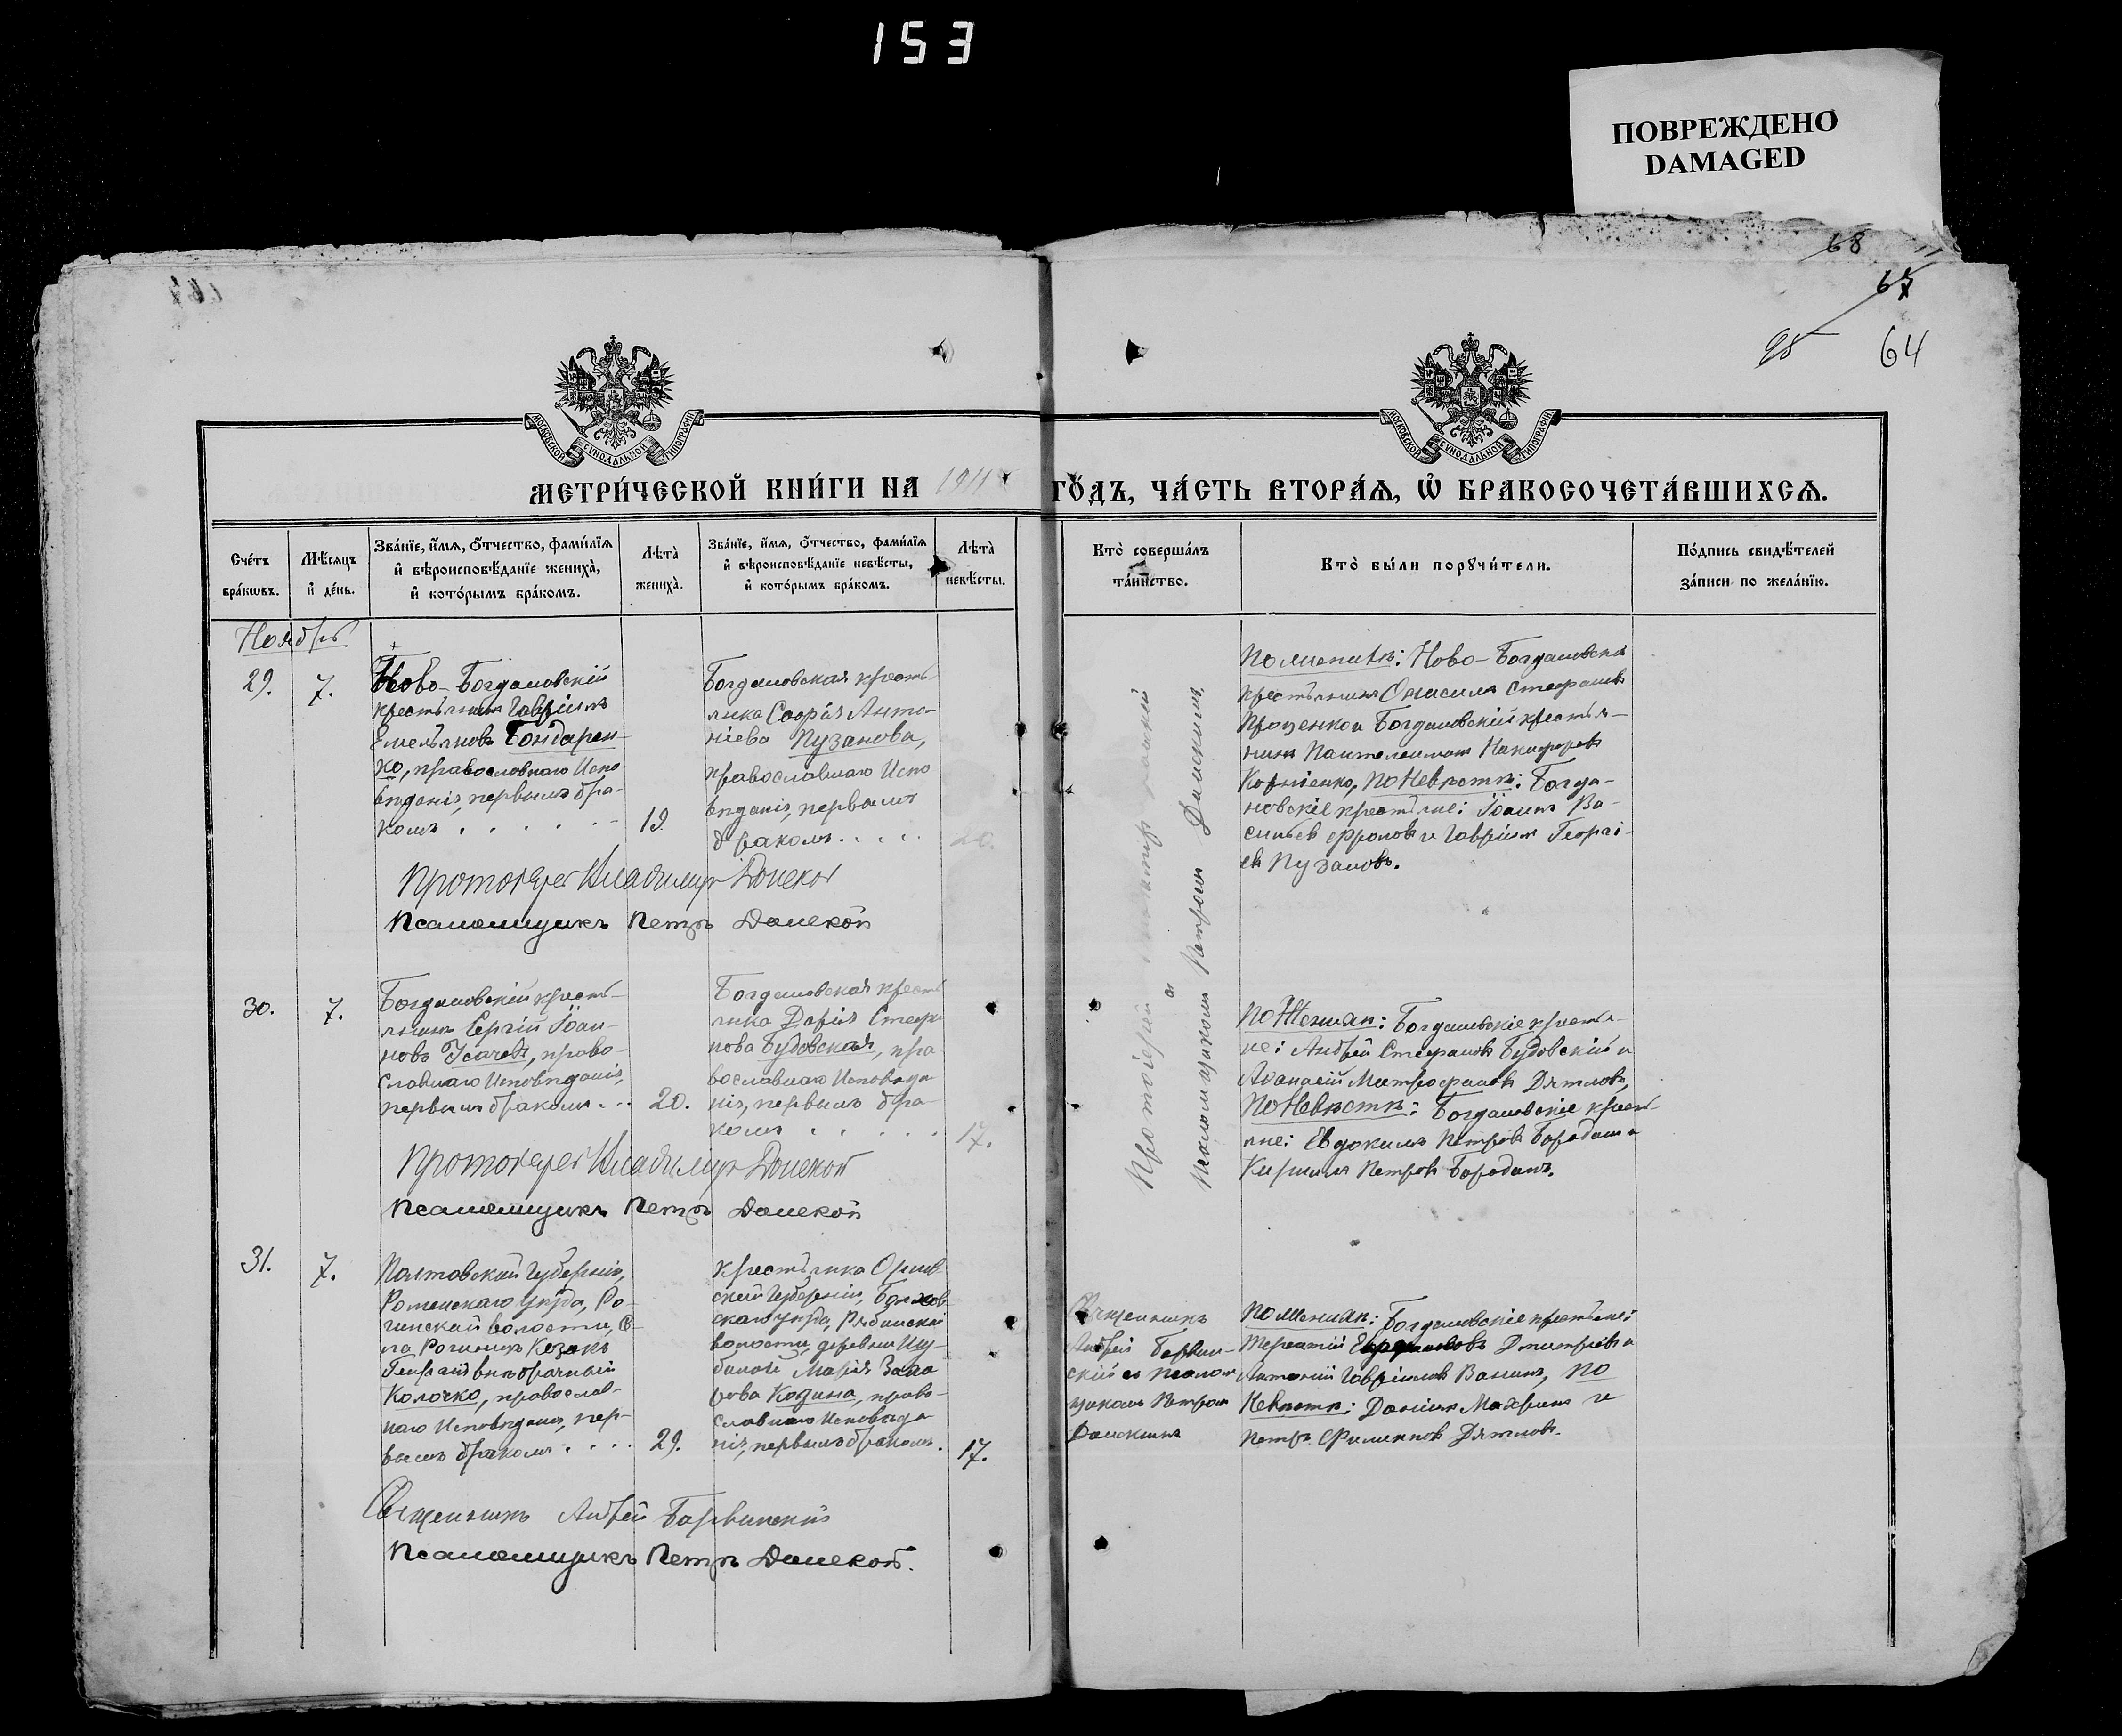 153
ПОВРЕЖДЕНО
DAMAGED
68
64
МОСКОВСКОЙ СѴНОДАЛЬНОЙ ТИПОГРАФІИ
МОСКОВСКОЙ СѴНОДАЛЬНОЙ ТИПОГРАФІИ
МЕТРИ́ЧЕСКОЙ КНИ́ГИ НА 1911 ГО́ДЪ, ЧА́СТЬ ВТОРА́Ѧ, Ѡ҆ БРАКОСОЧЕТА́ВШИХСѦ.
Сче́тъ
бра́кѡвъ.
Мѣ́сѧцъ
и҆ де́нь.
Зва́нїе, и҆́мѧ, ѻ҆́тчество, фами́лїѧ
и҆ вѣроисповѣ́данїе жениха̀,
и҆ кото́рымъ бра́комъ.
Лѣта̀
жениха̀.
Зва́нїе, и҆́мѧ, ѻ҆́тчество, фами́лїѧ
и҆ вѣроисповѣ́данїе невѣ́сты,
и҆ кото́рымъ бра́комъ.
Лѣта̀
невѣ́сты.
Кто̀ соверша́лъ
та́инство.
Кто̀ бы́ли порꙋчи́тели.
По́дпись свидѣ́телей
за́писи по жела́нїю.
Ноябрь
29.
7.
Ново-Богдановскій
крестьянинъ Гавріилъ
Емельяновъ Бондарен-
ко, православнаго Испо
вѣданія, первымъ бра-
комъ . . . . . .
19.
Богдановская кресть-
янка Софія Анто-
ніева Пузанова,
православнаго Испо
вѣданія, первымъ
бракомъ. . . .
20.
Протоіерей
Псаломщикомъ Петромъ Донскимъ
По женихѣ: Ново-Богдановскій
крестьянинъ Стефановъ
Проценко и Богдановскій крестья-
нинъ Пантелеимонъ Никифоровъ
Корніенко, По Невѣстѣ: Богда-
новскіе крестьяне: Іоаннъ Ва-
сильевъ Фроловъ и Гавріилъ Георгі-
евъ Пузановъ.
Протоіерей Владимиръ Донской
Псаломщикъ Петръ Донской
30.
7.
Богдановскій кресть-
янинъ Сергій Іоан-
новъ Усачевъ, право-
славнаго Исповѣданія,
первымъ бракомъ . .
20.
Богдановская кресть
янка Дарія Стефа
нова Будовская, пра
вославнаго Исповѣда
нія, первымъ бра-
комъ . . . . .
17.
По Женихѣ: Богдановскіе крестья-
не: Андрей Стефановъ Будовскій и
Аѳанасій Митрофановъ Дятловъ,
По Невѣстѣ: Богдановскіе кресть-
яне: Евдокимъ Петровъ Бороданъ и
Кириллъ Петровъ Бороданъ.
Протоіерей Владимиръ Донской
Псаломщикъ Петръ Донской
31.
7.
Полтавской Губерніи,
Роменскаго Уѣзда, Ро-
гинской волости, се-
ла Рогинецъ Козакъ
внѣбрачный
Колочко, православ-
наго Исповѣданія, пер-
вымъ бракомъ . . . .
29.
Крестьянка Орлов
ской Губерніи, Болхов-
скаго уѣзда, Рябинской
волости, деревни
Марія Заха
рова Козина, право-
славнаго Исповѣда
нія, первымъ бракомъ.
17.
Священникъ
Андрей Барвин-
скій съ псалом
щикомъ Петромъ
Донскимъ
По женихѣ: Богдановскіе крестьяне:
Терентій Дмитріевъ и
Антоній Гавріиловъ Ванинъ, По
Невѣстѣ: Даніилъ Махринъ и
Петръ Филипповъ Дятловъ.
Священникъ Андрей Барвинскій
Псаломщикъ Петръ Донской.